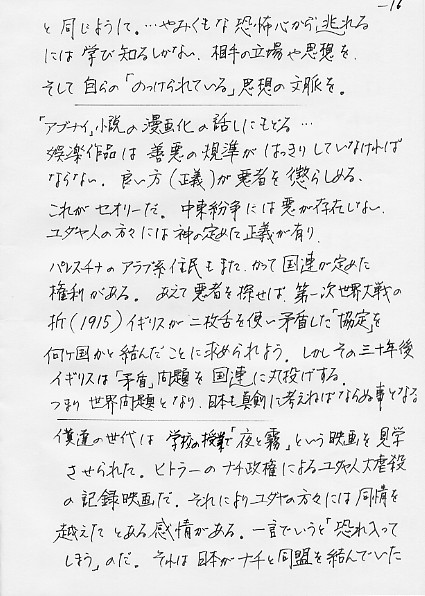 -16
と同じように。…やみくもな恐怖心から逃れる
には学び知るしかない。相手の立場や思想を、
そして自らの「のっけられている」思想の文脈を。
「アブナイ」小説の漫画化の話しにもどる…
娯楽作品は善悪の規準がはっきりしていなければ
ならない。良い方(正義)が悪者を懲らしめる、
これがセオリーだ。中東紛争には悪が存在しない。
ユダヤ人の方々には神の定めた正義が有り、
パレスチナのアラブ系住民もまた、かつて国連が定めた
権利がある。あえて悪者を探せば、第一次世界大戦の
折(1915)イギリスが二枚舌を使い矛盾した「協定」を
何ヶ国かと結んだことに求められよう。しかしその三十年後
イギリスは「矛盾」問題を国連に丸投げする。
つまり世界問題となり、日本も真剣に考えねばならぬ事となる
僕達の世代は学校の授業で「夜と霧」という映画を見学
させられた。ヒトラーのナチ政権によるユダヤ人大虐殺
の記録映画だ。それによりユダヤの方々には同情を
越えたとある感情がある。一言でいうと「恐れ入って
しまう」のだ。それは日本がナチと同盟を結んでいた